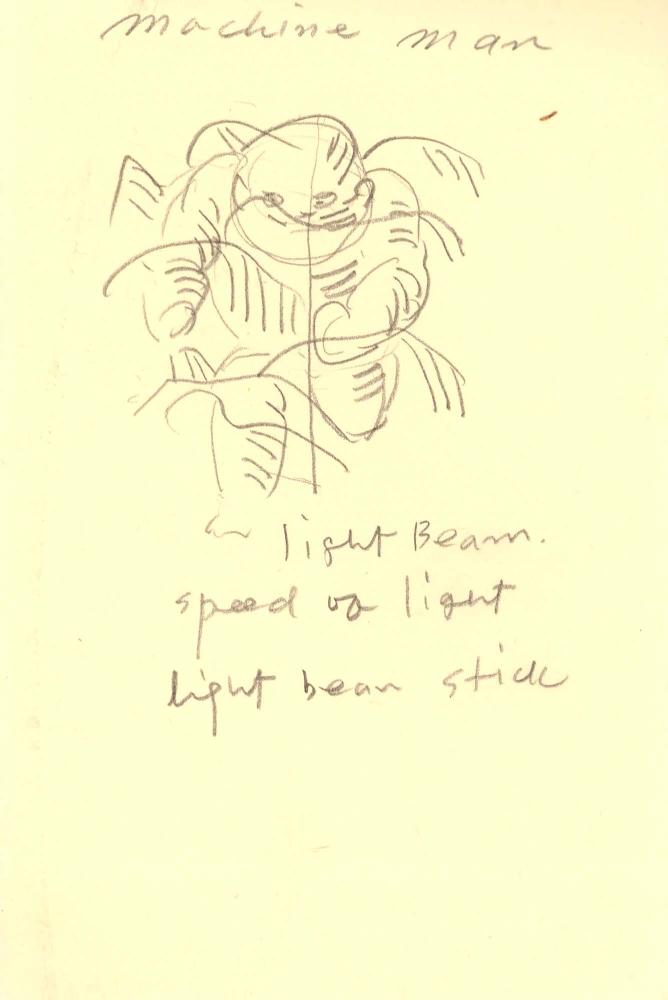 machine man
light Beam.
speed of light
light beam stick